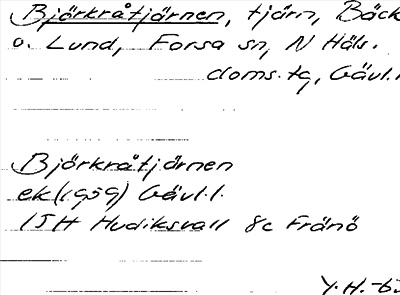 Björkråtjärnen, tjärn, Bäck
o. Lund, Forsa sn, N Häls.
doms.tg, Gävl.l
Björkråtjärnen
ek(1959) Gävl.l.
15H Hudiksvall 8c Frånö
Y.H.-63